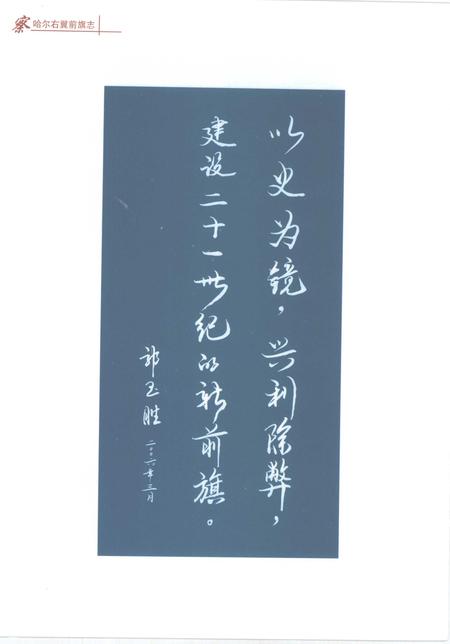 察哈尔右翼前旗志
以史为镜，兴利除弊，
建设二十一世纪的新前旗。
郭玉胜
二〇〇六年三月